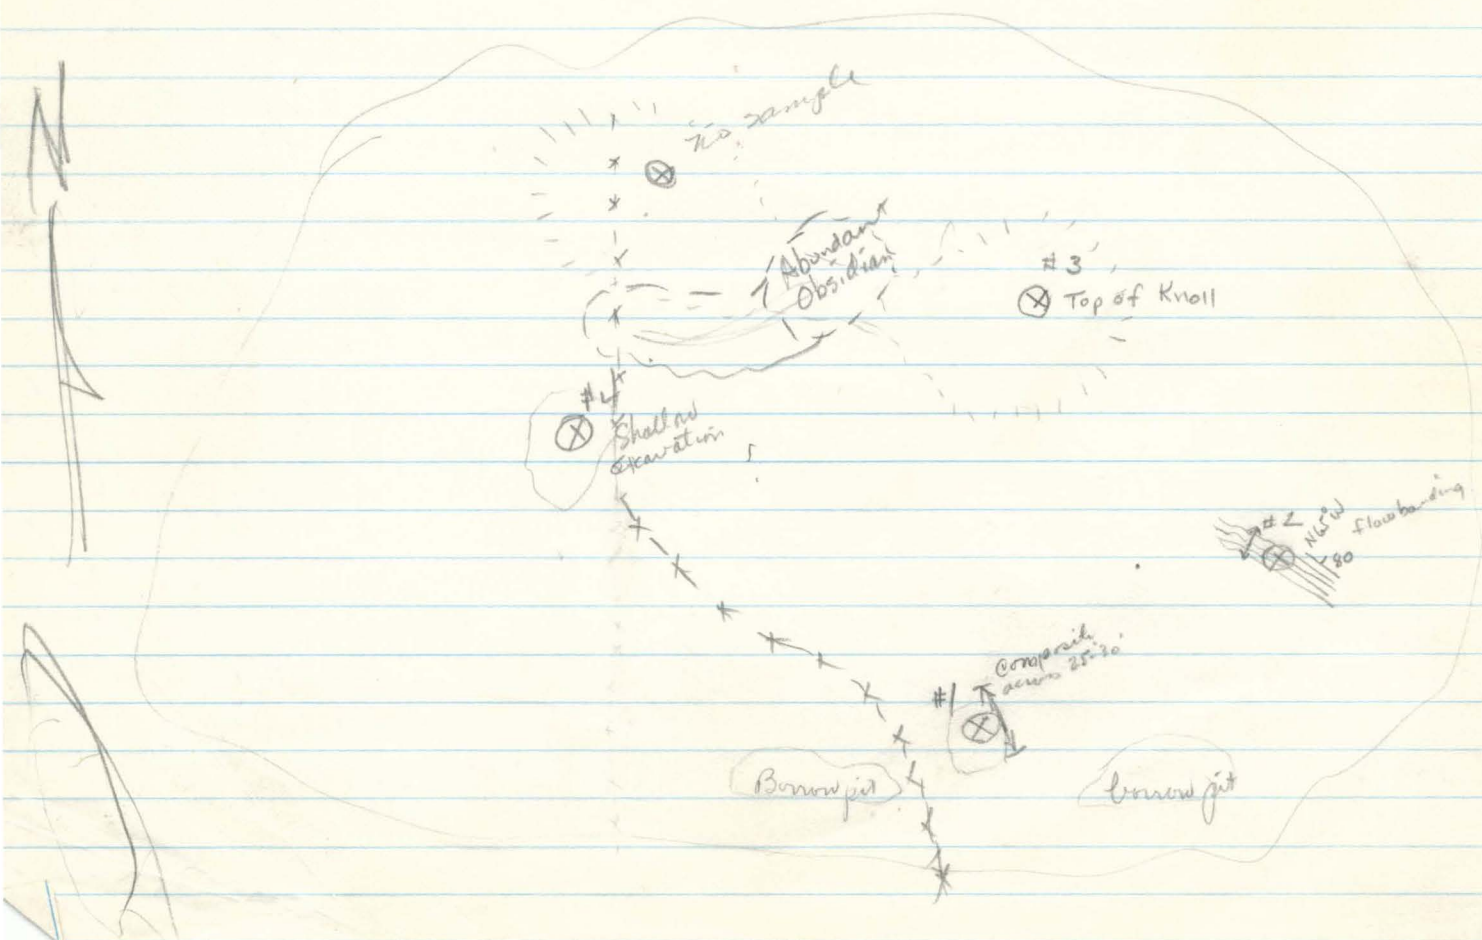 N
No sample
Abundant
Obsidian
#3
Top of Knoll
#4
Shallow
excavation
#2
N65°W
flowbanding
80
Composite
across 25-30'
#1
Borrow pit
borrow pit